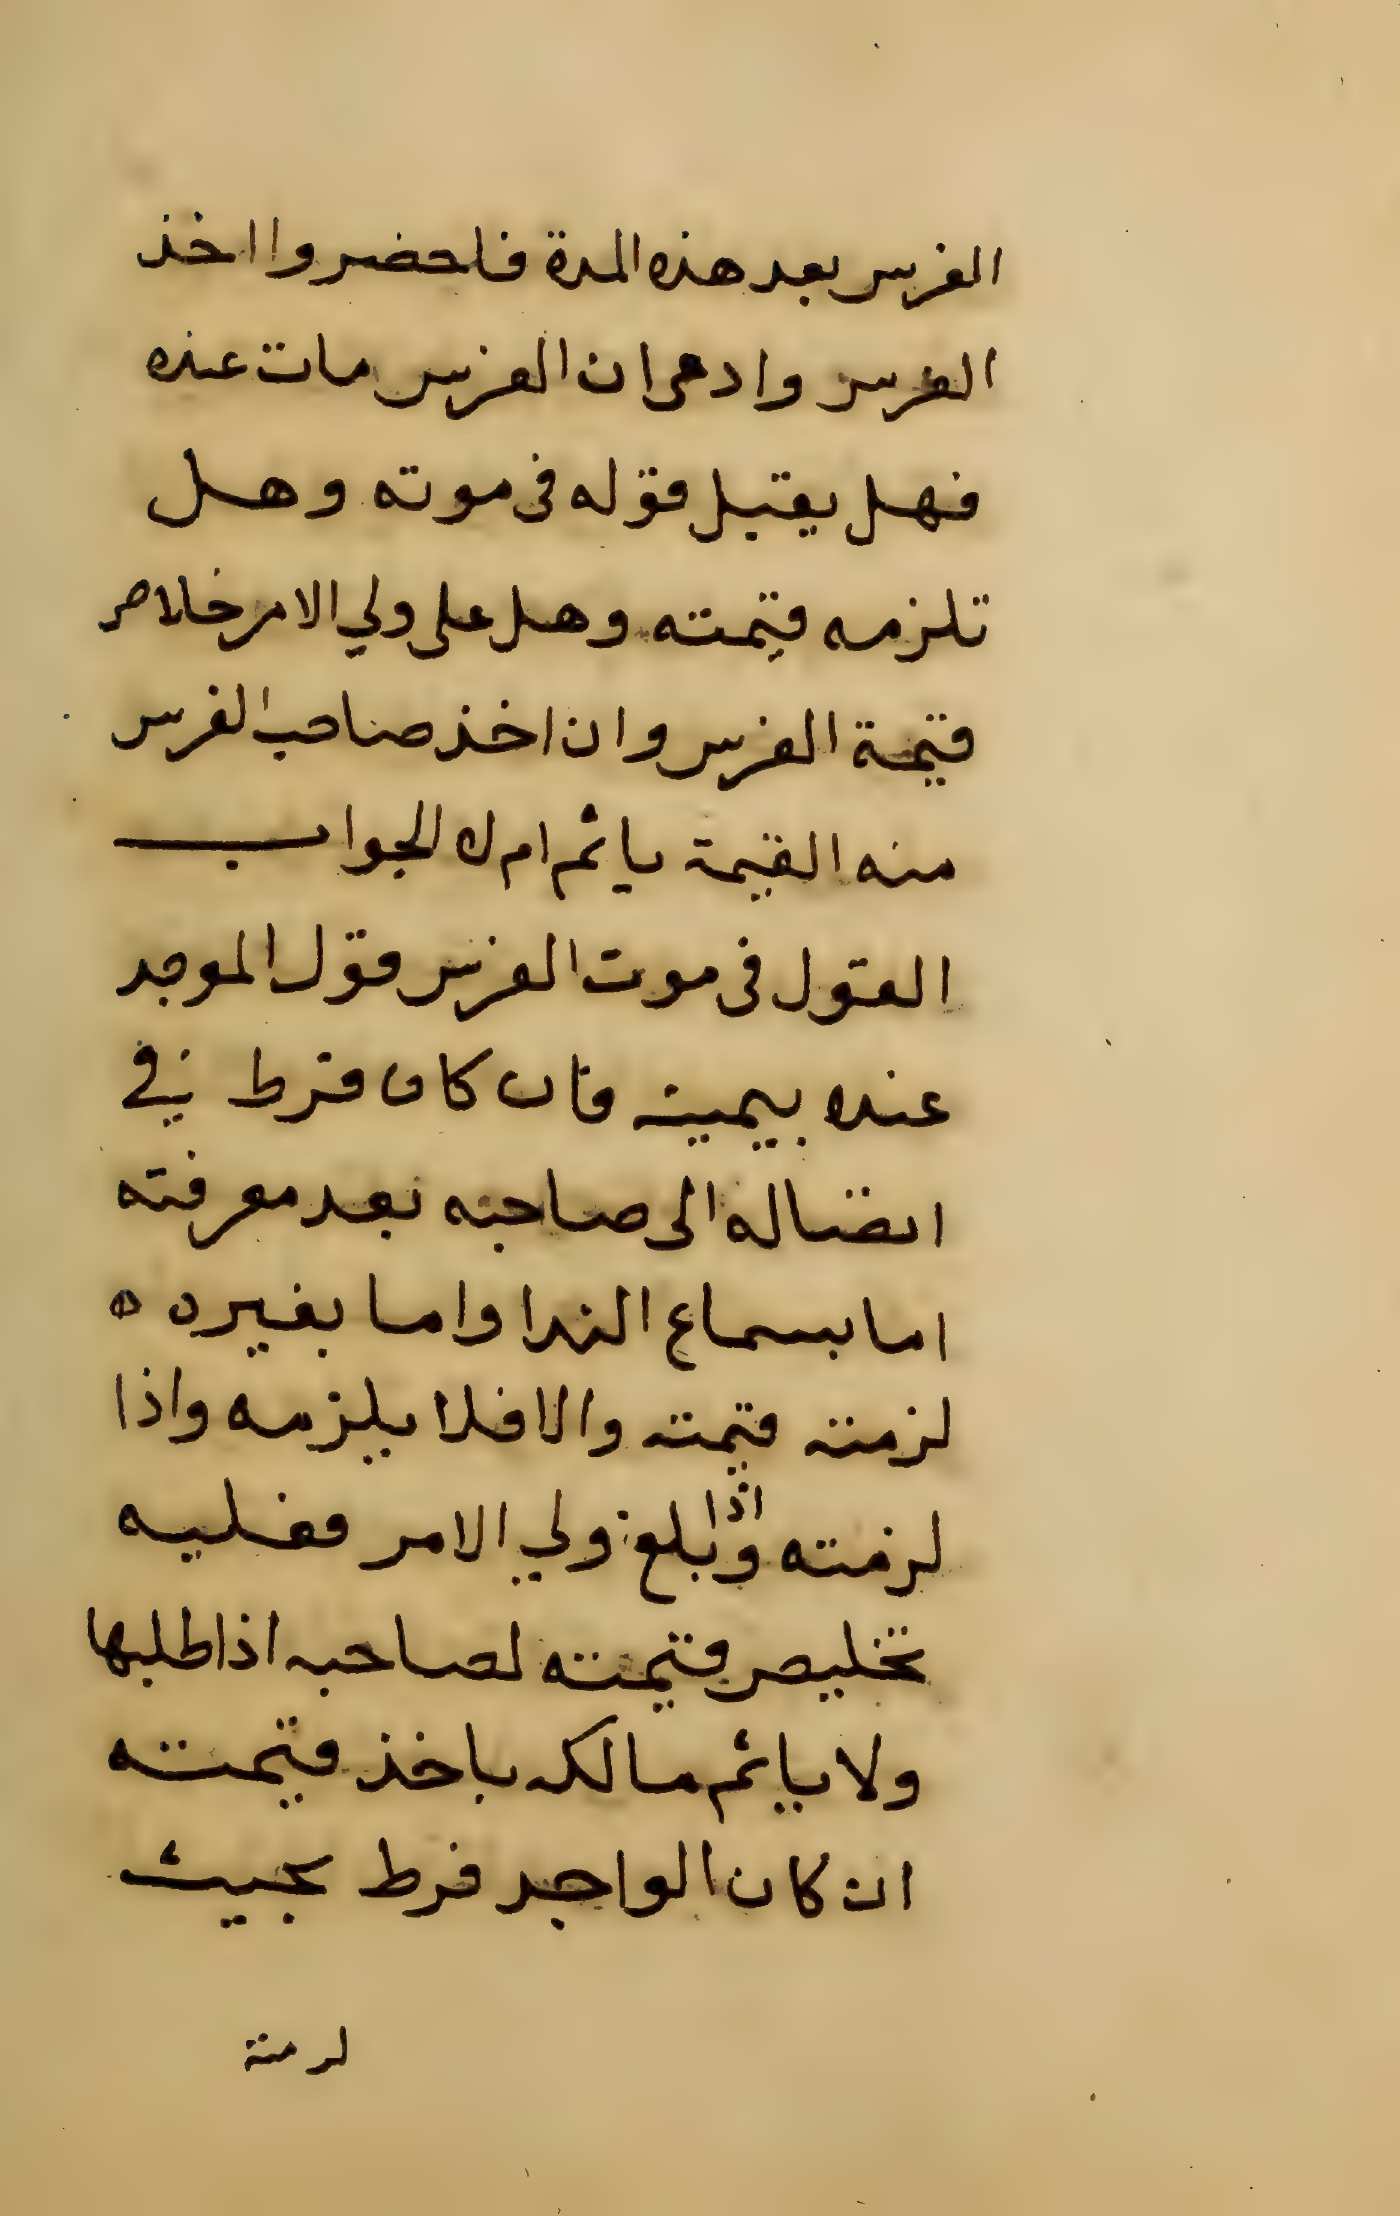 الفرس بعد هذه المدة فاحضروا اخذ
الفرس وادعى ان الفرس مات عنده
فهل يقبل قوله في موته وهل
تلزمه قيمته وهل على ولي الامر خلاص
قيمة الفرس وان اخذ صاحب الفرس
منه القيمة ياثم ام لا الجواب
القول في موت الفرس قول الموجد
عنده بيمينه فان كان فرط في
ايصاله الى صاحبه بعد معرفته
اما بسماع الندا واما بغيره ه
لزمته قيمته والا فلا يلزمه واذا
لزمته واذا بلغ ولي الامر فعليه
تخليص قيمته لصاحبه اذا طلبها
ولا ياثم مالكه باخذ قيمته
ان كان الواجد فرط بحيث
لزمته